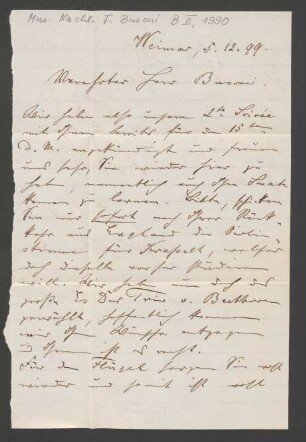 Mus. Nachl. F. Busoni B II, 1990
Weimar, 5. 12. 99.
Verehrter Herr Busoni.
Wir haben also unsere 2te Soirée
mit Ihnen bereits für den 15ten
d. M. angekündigt und freuen
uns sehr, Sie wieder hier zu
haben, namentlich auch Ihre Sonate
kennen zu lernen. Bitte, schicken
Sie nur sofort nach Ihrer Rück-
kehr aus England die Violin-
stimme für Krasselt, welcher
doch dieselbe vorher studieren
will. Wir haben uns doch das
große Es Dur Trio v. Beethoven
gewählt, hoffentlich kommen
wir Ihren Wünschen entgegen
u. Ihnen ist es recht.
Für den Flügel sorgen Sie wohl
wieder und somit ist wohl